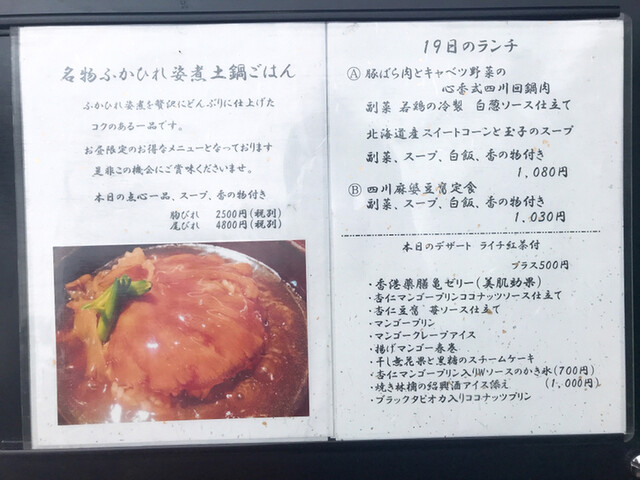 名物ふかひれ姿煮土鍋ごはん
ふかひれ姿煮を贅沢にどんぶりに仕上げた
コクのある一品です。
お昼限定のお得なメニューとなっております
是非この機会にご賞味くださいませ。
本日の点心一品、スープ、香の物付き
胸びれ 2500円(税別)
尾びれ 4800円(税別)
19日のランチ
Ⓐ 豚ばら肉とキャベツ野菜の
心香式四川回鍋肉
副菜 若鶏の冷製 白葱ソース仕立て
北海道産スイートコーンと玉子のスープ
副菜、スープ、白飯、香の物付き
1,080円
Ⓑ 四川麻婆豆腐定食
副菜、スープ、白飯、香の物付き
1,030円
本日のデザート ライチ紅茶付
プラス500円
・香港薬膳亀ゼリー(美肌効果)
・杏仁マンゴープリンココナッツソース仕立て
・杏仁豆腐 苺ソース仕立て
・マンゴープリン
・マンゴークレープアイス
・揚げマンゴー春巻
・干し無花果と黒糖のスチームケーキ
・杏仁マンゴープリン入りWソースのかき氷(700円)
・焼き林檎の紹興酒アイス添え (1,000円)
・ブラックタピオカ入りココナッツプリン